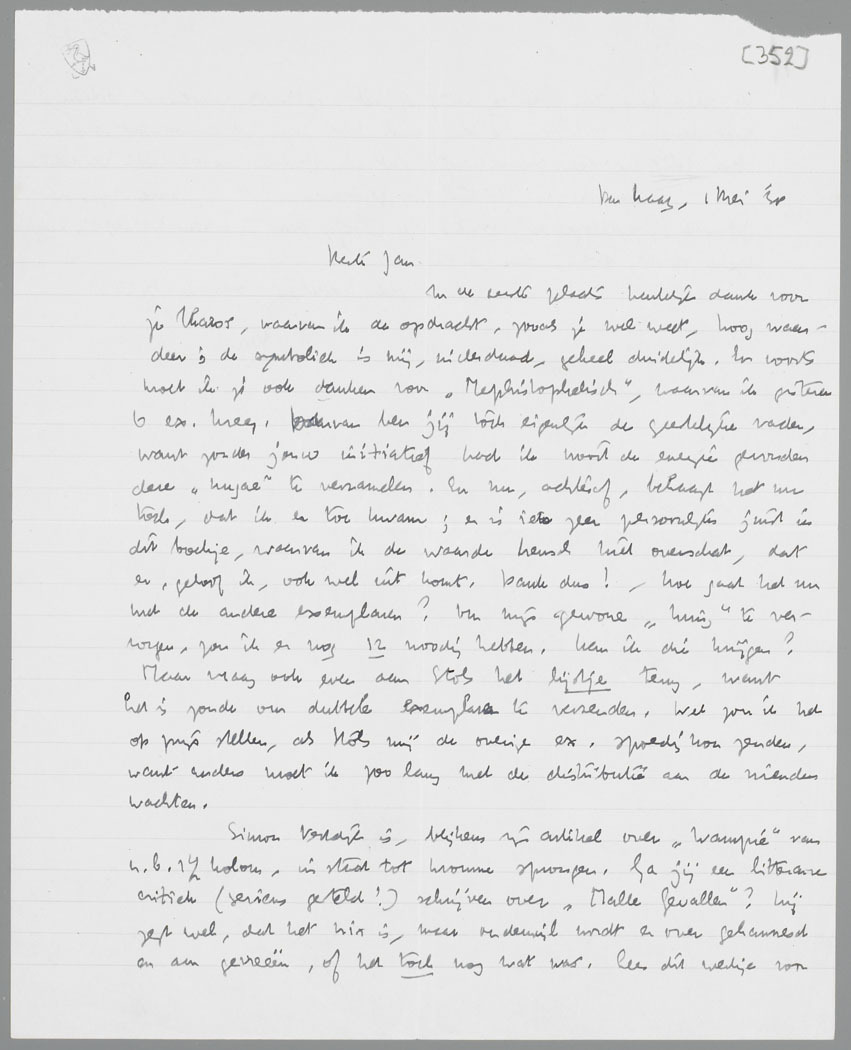 [352]
Den Haag, 1 Mei '38
Beste Jan
In de eerste plaats hartelijk dank voor
je, waarvan ik de opdracht, zooals je wel weet, hoog waar-
deer; de symboliek is mij, inderdaad, geheel duidelijk. En voorts
moet ik je ook danken voor „Mephistophelisch", waarvan ik gisteren
6 ex. kreeg. Daarvan ben jij toch eigenlijk de geestelijke vader,
want zonder jouw initiatief had ik nooit de energie gevonden
deze „nugae" te verzamelen. En nu, achteraf, behaagt het me
toch, dat ik er toe kwam; er is iets zeer persoonlijks juist in
dit boekje, waarvan ik de waarde heusch niet overschat, dat
er, geloof ik, ook wel uit komt. Dank dus! – Hoe gaat het nu
met de andere exemplaren? Om mijn gewone „kring" te ver-
zorgen, zou ik er nog 12 noodig hebben. Kan ik die krijgen?
Maar vraag ook even aan Stols het lijstje terug, want
het is zonde om dubbele exemplaren te verzenden. Wel zou ik het
op prijs stellen, als Stols mij de overige ex. spoedig kon zenden,
want anders moet ik zoo lang met de distributie aan de vrienden
wachten.
Simon Vestdijk is, blijkens zijn artikel over „Vampier" van
n.b. 1½ kolom, in staat tot kromme sprongen. Ga jij een litteraire
critiek (serieus gesteld!) schrijven over „Malle Gevallen"? Hij
zegt wel, dat het niks is, maar ondertusschen wordt er over gehannesd
en aan, of het toch nog wat was. Lees dit werkje voor